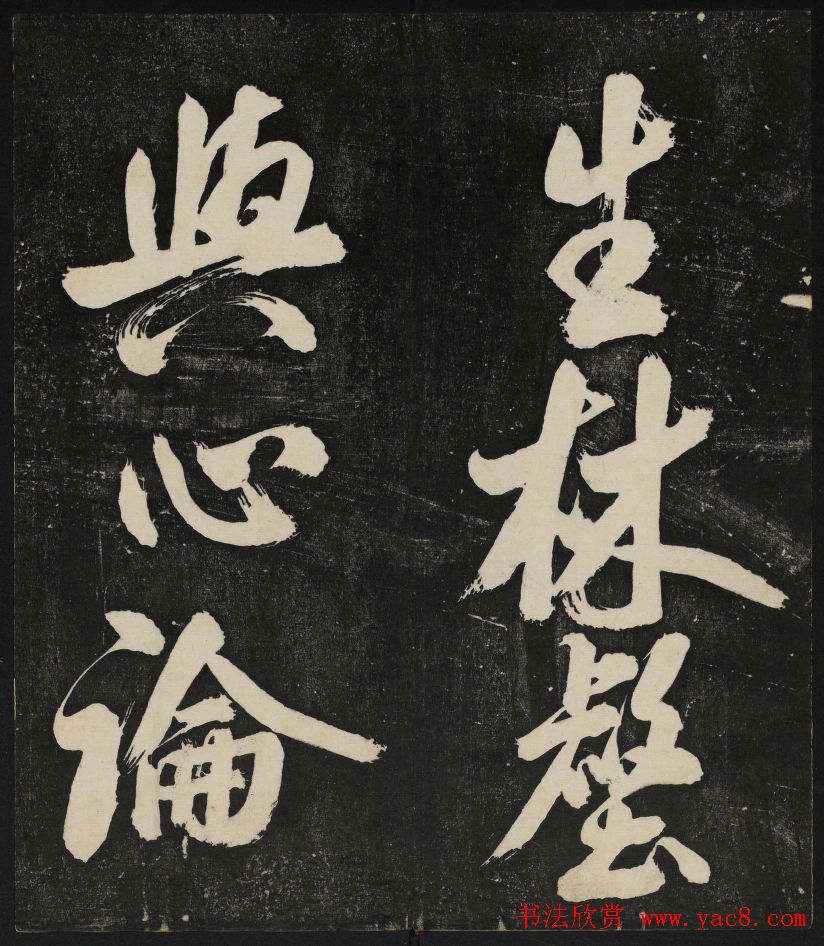 生林壑
與心論
书法欣赏 www.yac8.com